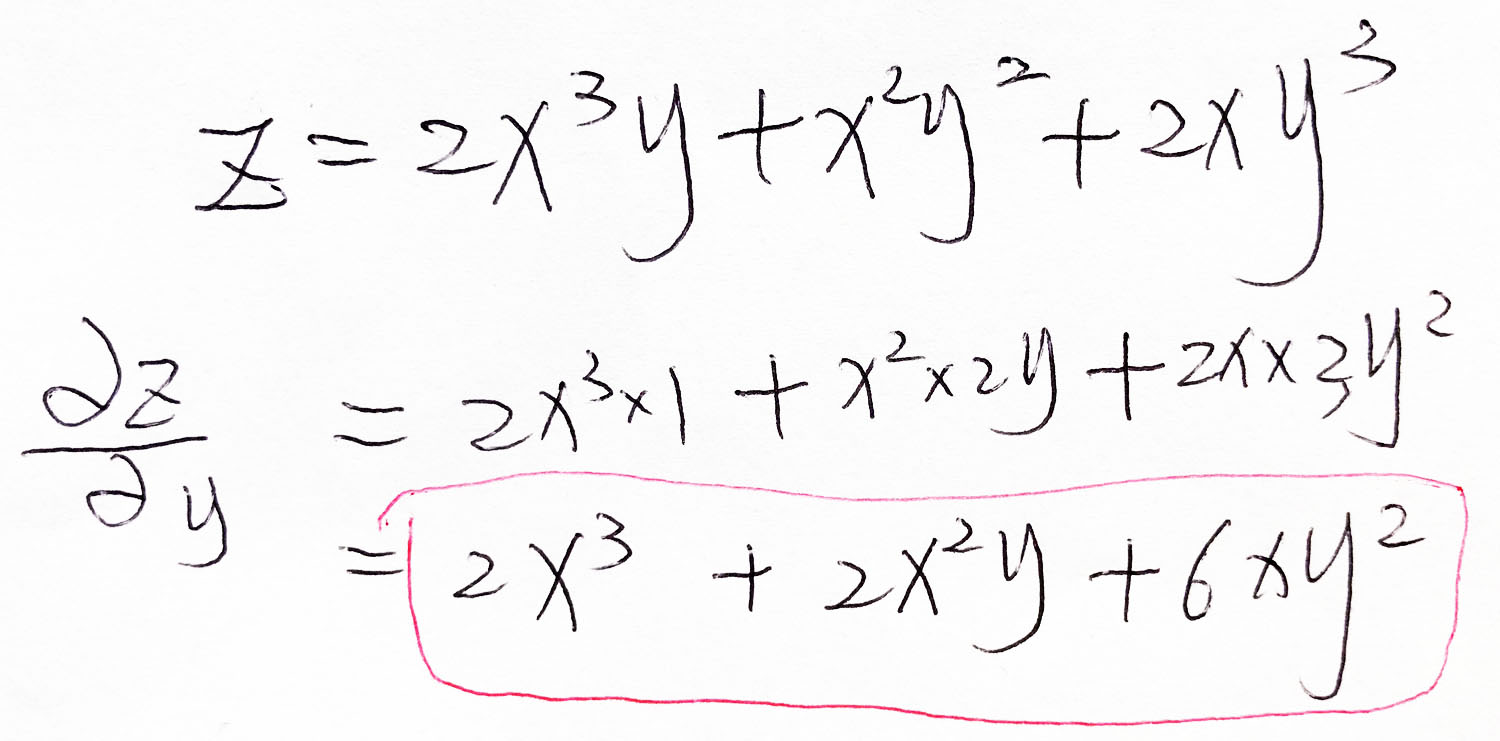 z = 2x³y + x²y² + 2xy³
∂z/∂y = 2x³ × 1 + x² × 2y + 2x × 3y²
= 2x³ + 2x²y + 6xy²